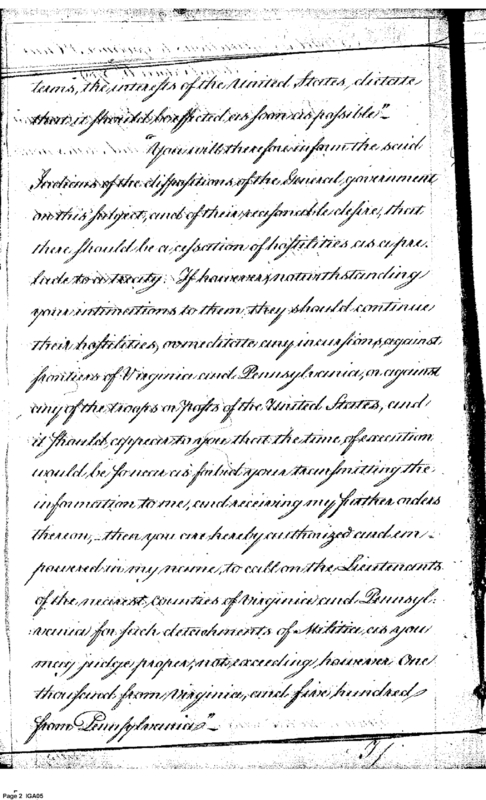 terms, the interests of the United States, dictate
that it should be effected as soon as possible"_
"You will therefore inform the said
Indians of the dispositions of the General government
on this subject, and of their reasonable desire, that
there should be a cessation of hostilities as a pre-
lude to a treaty. If however, notwithstanding
your intimations to them, they should continue
their hostilities, or meditate any incursions against
frontiers of Virginia and Pennsylvania, or against
any of the troops or posts of the United States, and
it should appear to you that the time of execution
would be so near as forbid your transmitting the
information to me, and receiving my further orders
thereon, _ then you are hereby authorized and em-
powered in my name, to call on the Lieutenants
of the nearest counties of Virginia and Pennsyl-
vania for such detachments of Militia, as you
may judge proper, not exceeding, however One
thousand from Virginia, and five hundred
from Pennsylvania"_
If
Page 2 IGA05